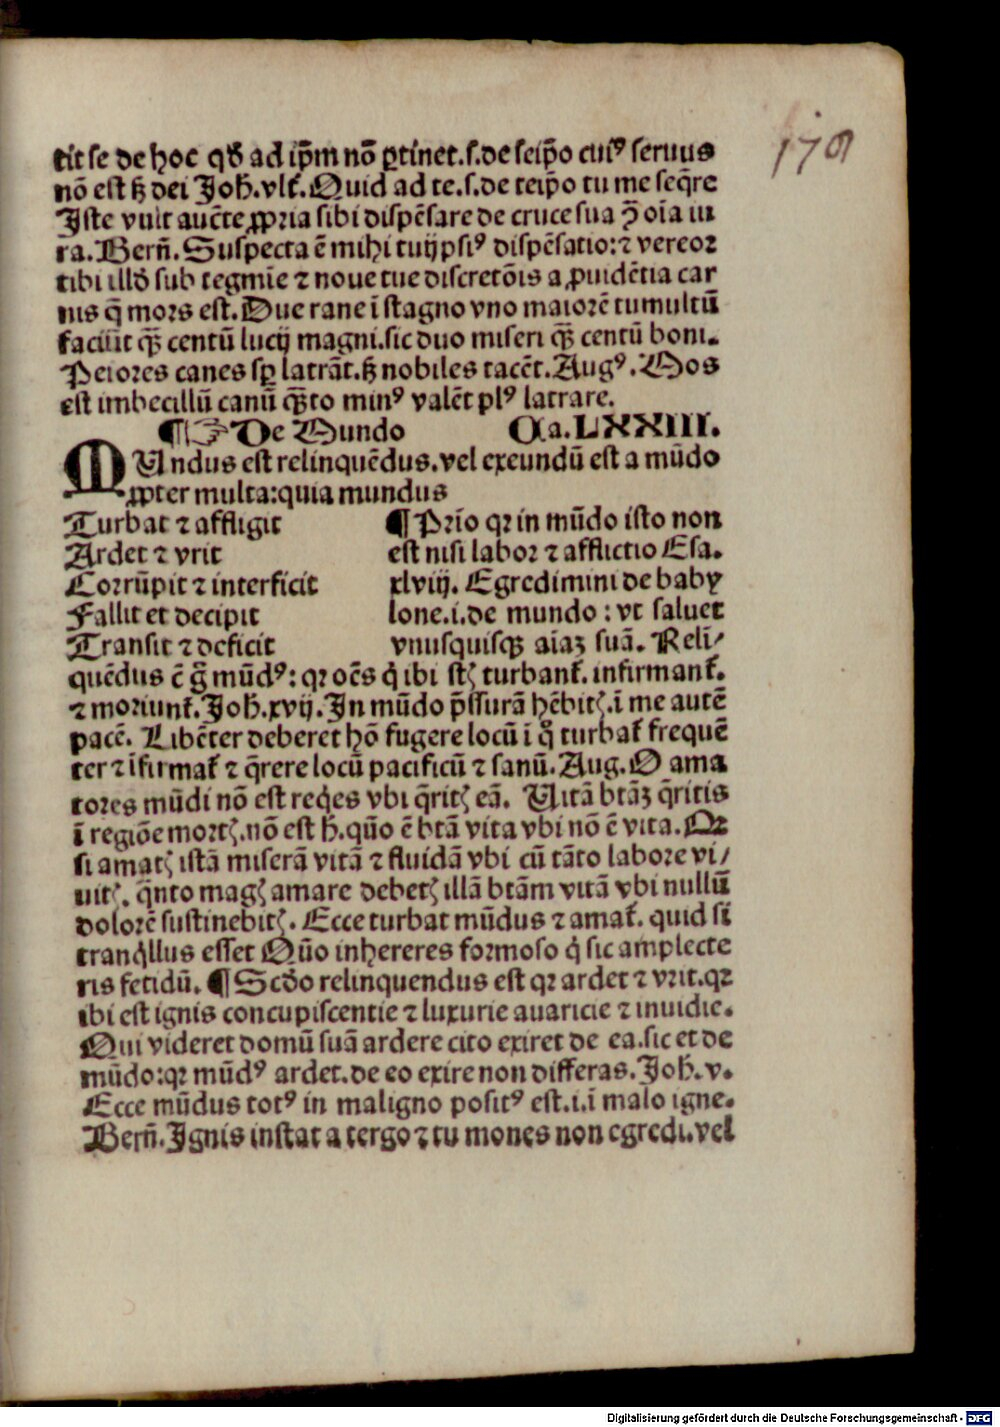 179
tit se de hoc qđ ad ip̄m nō ꝑtinet.s.de seip̄o cuiꝰ seruus
nō est sꝫ dei Joh̄.vlt̄. Quid ad te.s.de teip̄o tu me seq̄re
Iste vult auēte ꝓpria sibi dispēsare de cruce sua ꝯ oīa iu
ra. Bern̄. Suspecta ē mihi tuijpsiꝰ dispēsatio: ⁊ vereor
tibi illđ sub tegmīe ⁊ noue tue discretōis a ꝓuidētia car
nis q̄ mors est. Due rane ī stagno vno maiorē tumultū
faciūt qꝫ̄ centū lucij magni.sic duo miseri qꝫ̄ centū boni.
Peiores canes sꝑ latrāt.sꝫ nobiles tacēt. Augꝰ. Mos
est imbecillū canū qꝫ̄to minꝰ valēt plꝰ latrare.
¶ ☞ De Mundo Ca. LXXIII.
MUndus est relinquēdus.vel exeundū est a mūdo
ꝓpter multa:quia mundus
Turbat ⁊ affligit
Ardet ⁊ vrit
Corrūpit ⁊ interficit
Fallit et decipit
Transit ⁊ deficit
¶ Prīo qꝛ in mūdo isto non
est nisi labor ⁊ afflictio Esa.
xlviij. Egredimini de baby
lone.i.de mundo : vt saluet
vnusquisqꝫ aīaꝫ suā. Reli⸗
quēdus ē g̅ mūdꝰ: qꝛ oēs q̇ ibi stꝭ turbant̄. infirmant̄.
⁊ moriunt̄. Joh̄.xvij. In mūdo p̄ssurā hēbitꝭ.ī me autē
pacē. Libēter deberet hō fugere locū ī q̊ turbat̄ frequē
ter ⁊ īfirmat̄ ⁊ q̄rere locū pacificū ⁊ sanū. Aug. O ama
tores mūdi nō est req̇es vbi q̄ritꝭ eā. Vitā btāꝫ q̄ritis
ī regiōe mortꝭ.nō est h̄.quō ē btā vita vbi nō ē vita. Qꝛ
si amatꝭ istā miserā vitā ⁊ fluidā vbi cū tāto labore vi/
uitꝭ. q̄nto magꝭ amare debetꝭ illā btām vitā vbi nullū
dolorē sustinebitꝭ. Ecce turbat mūdus ⁊ amat̄. quid si
tranq̇llus esset Quō inhereres formoso q̇ sic amplecte
ris fetidū. ¶ Scđo relinquendus est qꝛ ardet ⁊ vrit.qꝛ
ibi est ignis concupiscentie ⁊ luxurie auaricie ⁊ inuidie.
Qui videret domū suā ardere cito exiret de ea.sic et de
mūdo:qꝛ mūdꝰ ardet.de eo exire non differas. Joh̄.v.
Ecce mūdus totꝰ in maligno positꝰ est.i.ī malo igne.
Bern̄. Ignis instat a tergo ⁊ tu mones non egredi.vel
Digitalisierung gefördert durch die Deutsche Forschungsgemeinschaft - DFG